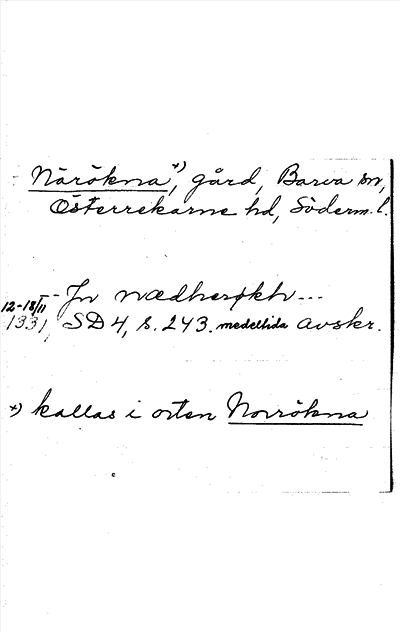 Närökna, +) gård, Barva sn,
Österrekarne hd, Söderm. l.
12-18/11 Jn nædherøkh...
1331, SD 4, s. 243. medeltida avskr.
+) kallas i orten Norrökna